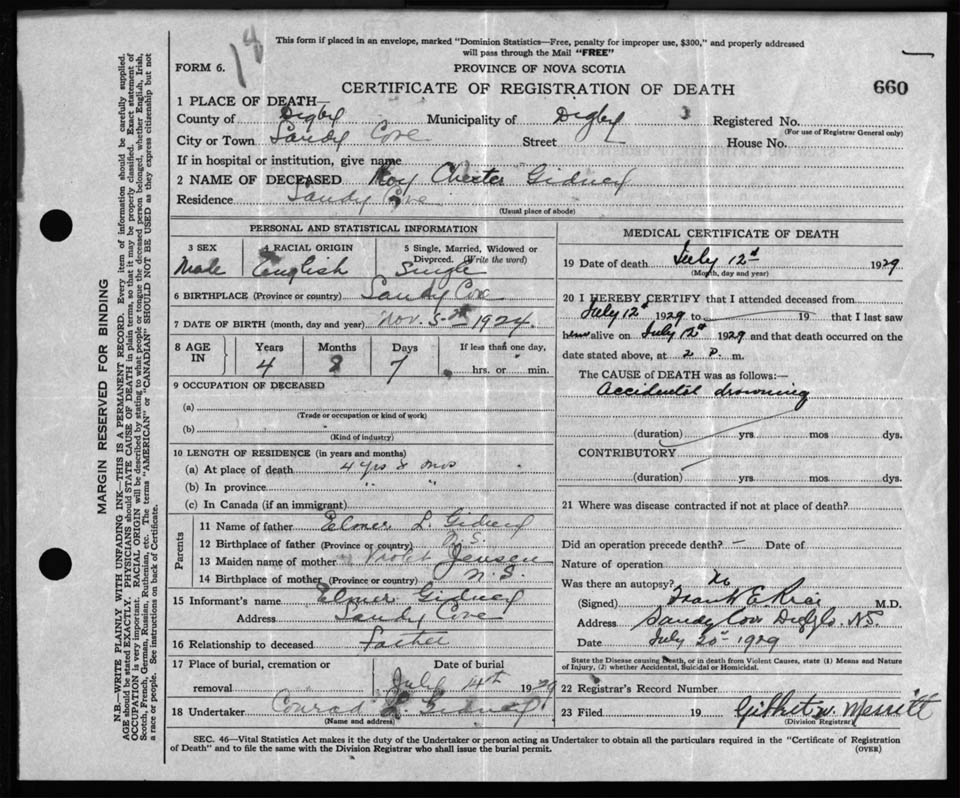 18
This form if placed in an envelope, marked "Dominion Statistics—Free, penalty for improper use, $300," and properly addressed
will pass through the Mail "FREE"
FORM 6.
PROVINCE OF NOVA SCOTIA
CERTIFICATE OF REGISTRATION OF DEATH
660
1 PLACE OF DEATH—
County of Digby Municipality of Digby Registered No.
(For use of Registrar General only)
City or Town Sandy Cove Street House No.
If in hospital or institution, give name
2 NAME OF DECEASED Roy Chester Gidney
Residence Sandy Cove
(Usual place of abode)
PERSONAL AND STATISTICAL INFORMATION
3 SEX 4 RACIAL ORIGIN 5 Single, Married, Widowed or
Divorced. (Write the word)
Male English Single
6 BIRTHPLACE (Province or country) Sandy Cove
7 DATE OF BIRTH (month, day and year) Nov. 5th 1924.
8 AGE IN Years Months Days If less than one day,
4 8 7 hrs. or min.
9 OCCUPATION OF DECEASED
(a)
(Trade or occupation or kind of work)
(b)
(Kind of industry)
10 LENGTH OF RESIDENCE (in years and months)
(a) At place of death 4 yrs 8 mos
(b) In province " "
(c) In Canada (if an immigrant)
Parents
11 Name of father Elmer L. Gidney
12 Birthplace of father (Province or country) N.S.
13 Maiden name of mother Jensen
14 Birthplace of mother (Province or country) N.S.
15 Informant's name Elmer Gidney
Address Sandy Cove
16 Relationship to deceased Father
17 Place of burial, cremation or Date of burial
removal July 14th 1929
18 Undertaker Conrad L. Gidney
(Name and address)
MEDICAL CERTIFICATE OF DEATH
19 Date of death July 12th 1929
(Month, day and year)
20 I HEREBY CERTIFY that I attended deceased from
July 12th 1929 to — 19 that I last saw
him alive on July 12th 1929 and that death occurred on the
date stated above, at 2 P. m.
The CAUSE of DEATH was as follows:—
Accidental drowning
(duration) yrs. mos dys.
CONTRIBUTORY
(duration) yrs. mos dys.
21 Where was disease contracted if not at place of death?
Did an operation precede death? — Date of
Nature of operation
Was there an autopsy? No
(Signed) Frank E. Rice M.D.
Address Sandy Cove Digby Co. N.S.
Date July 20th 1929
State the Disease causing Death, or in death from Violent Causes, state (1) Means and Nature
of Injury, (2) whether Accidental, Suicidal or Homicidal.
22 Registrar's Record Number
23 Filed 19 Gilbert W. Merritt
(Division Registrar)
SEC. 46—Vital Statistics Act makes it the duty of the Undertaker or person acting as Undertaker to obtain all the particulars required in the "Certificate of Registration
of Death" and to file the same with the Division Registrar who shall issue the burial permit.
(OVER)
MARGIN RESERVED FOR BINDING
N.B.—WRITE PLAINLY WITH UNFADING INK—THIS IS A PERMANENT RECORD. Every item of information should be carefully supplied.
AGE should be stated EXACTLY. PHYSICIANS should STATE CAUSE OF DEATH in plain terms, so that it may be properly classified. Exact statement of
OCCUPATION is very important. RACIAL ORIGIN will be described by stating to what people or tongue the deceased person belonged, whether English, Irish,
Scotch, French, German, Russian, Ruthenian, etc. The terms "AMERICAN" or "CANADIAN" SHOULD NOT BE USED as they express citizenship but not
a race or people. See instructions on back of Certificate.